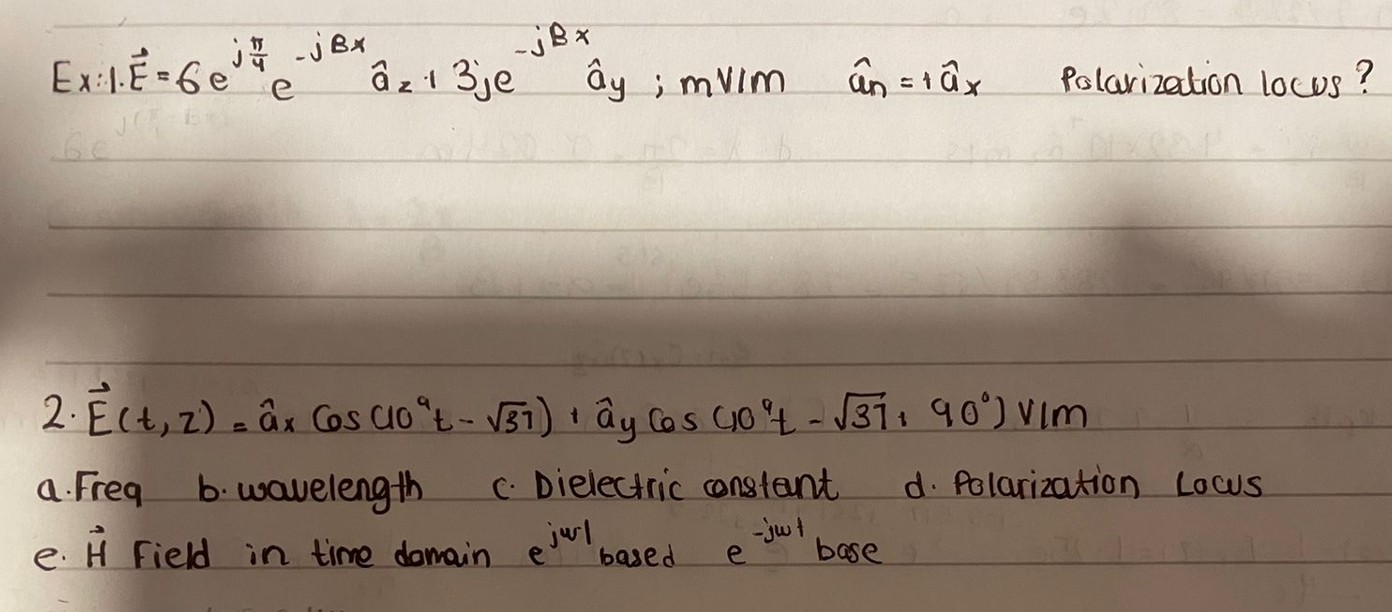 Ex:1. E⃗ = 6e^{jπ/4} e^{-jβx} âz + 3je^{-jβx} ây ; mV/m ân = +âx Polarization locus?
2. E⃗(t, z) = âx Cos(10⁹t - √37) + ây Cos(10⁹t - √37 + 90°) V/m
a. Freq b. wavelength c. Dielectric constant d. Polarization Locus
e. H⃗ Field in time domain e^{jwt} based e^{-jwt} base